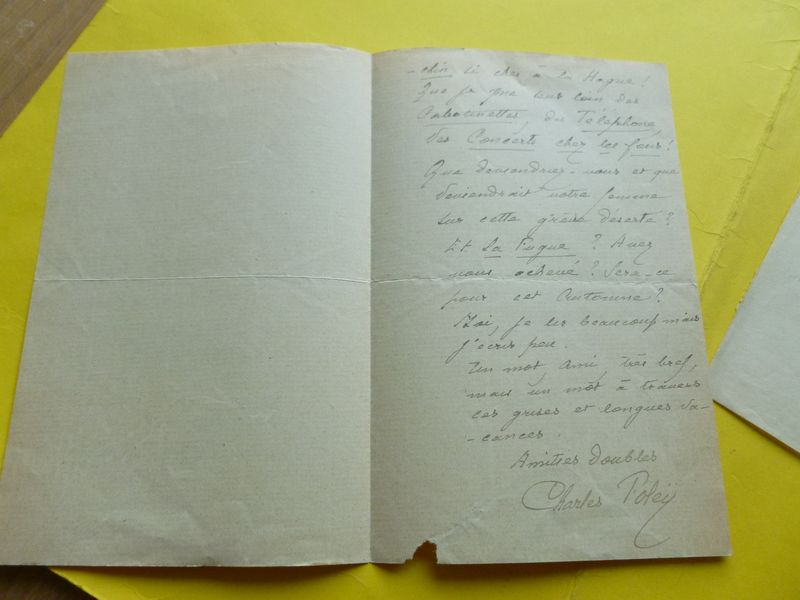 - chin si cher à la Hague !
Que je me sens loin des
Cabotinettes, du Téléphone,
des Concerts chez les fous !
Que deviendriez-vous et que
deviendrait votre femme
sur cette grève déserte ?
Et La Fugue ? Avez
vous achevé ? Sera-ce
pour cet Automne ?
Moi, je lis beaucoup mais
j'écris peu.
Un mot, Ami, très bref,
mais un mot à travers
ces grises et longues va-
-cances.
Amitiés doubles
Charles Foleÿ